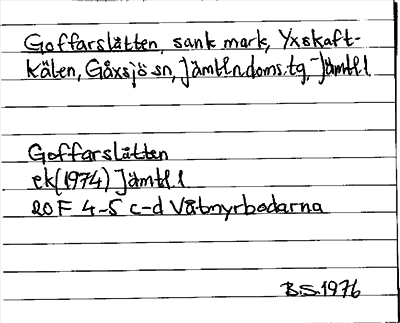 Goffarslåtten, sank mark, Yxskaft-
kälen, Gåxsjö sn, Jämtl.n.doms.tg, Jämtl l
Goffarslåtten
ek (1974) Jämtl l
20 F 4-5 c-d Våtmyrbodarna
B.S. 1976